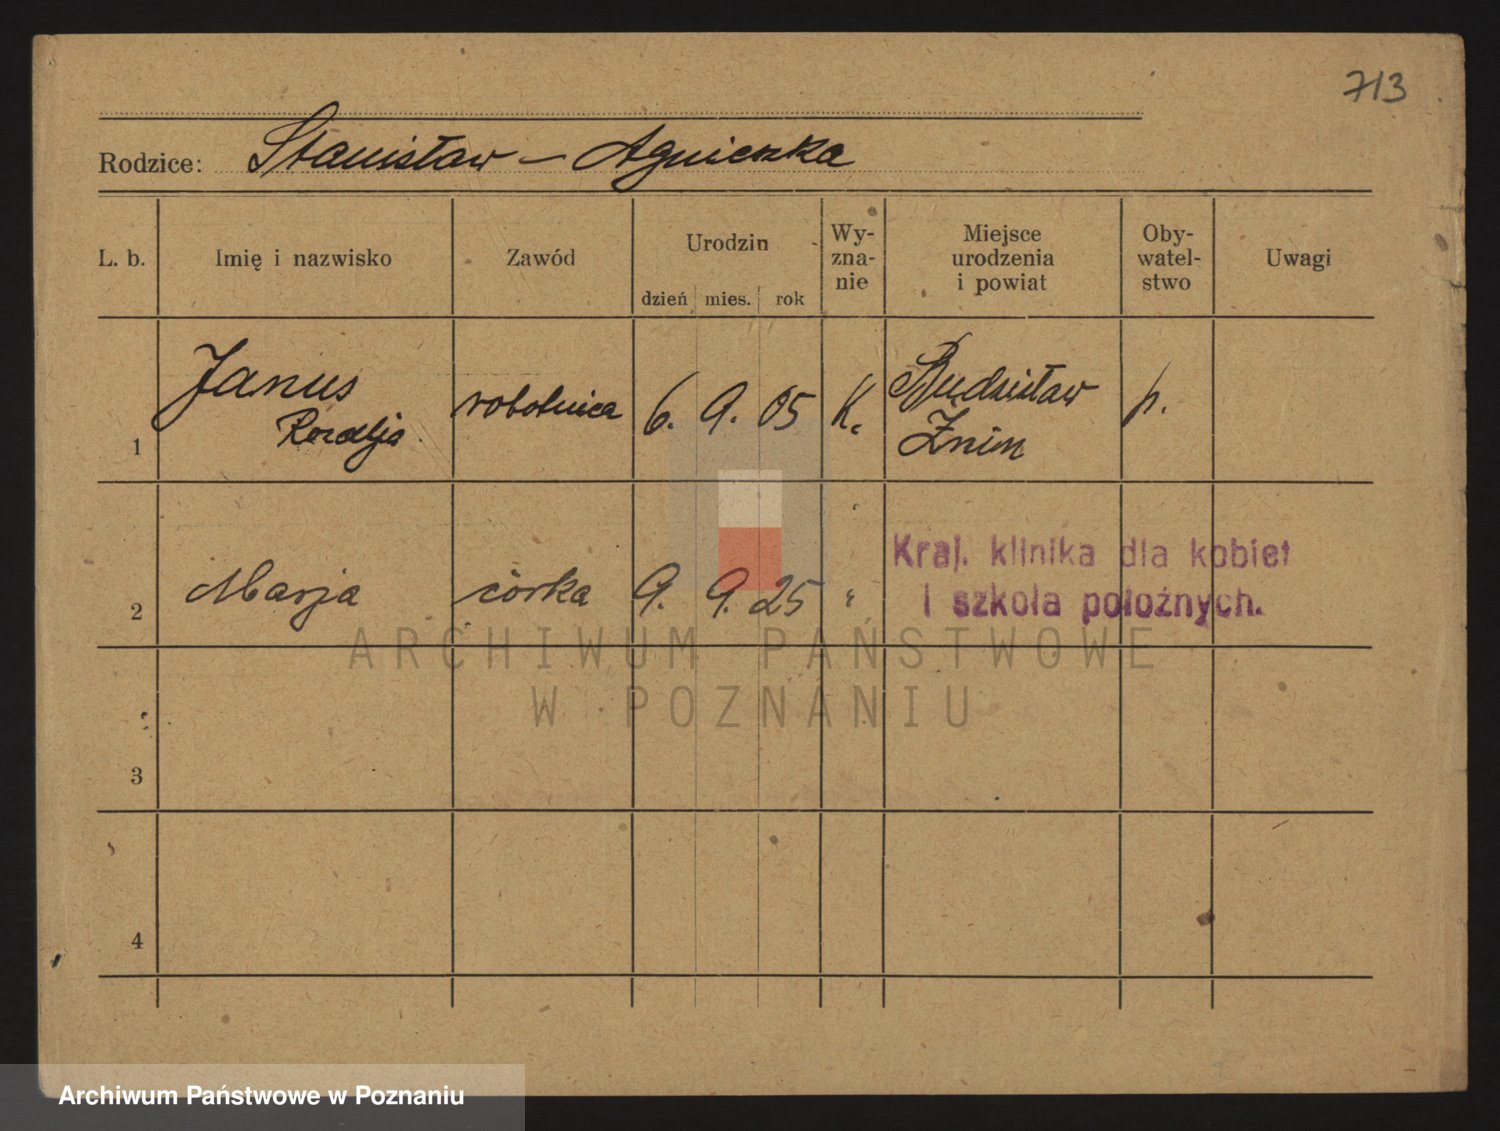 713
Rodzice: Stanisław – Agnieszka
L. b. Imię i nazwisko Zawód Urodzin dzień mies. rok Wy- zna- nie Miejsce urodzenia i powiat Oby- watel- stwo Uwagi
1 Janus Rozalja robotnica 6. 9. 05 K. Budzisław Żnin p.
2 Marja córka 9. 9. 25 " Kraj. klinika dla kobiet
i szkoła położnych.
ARCHIWUM PAŃSTWOWE
W POZNANIU
3
4
Archiwum Państwowe w Poznaniu